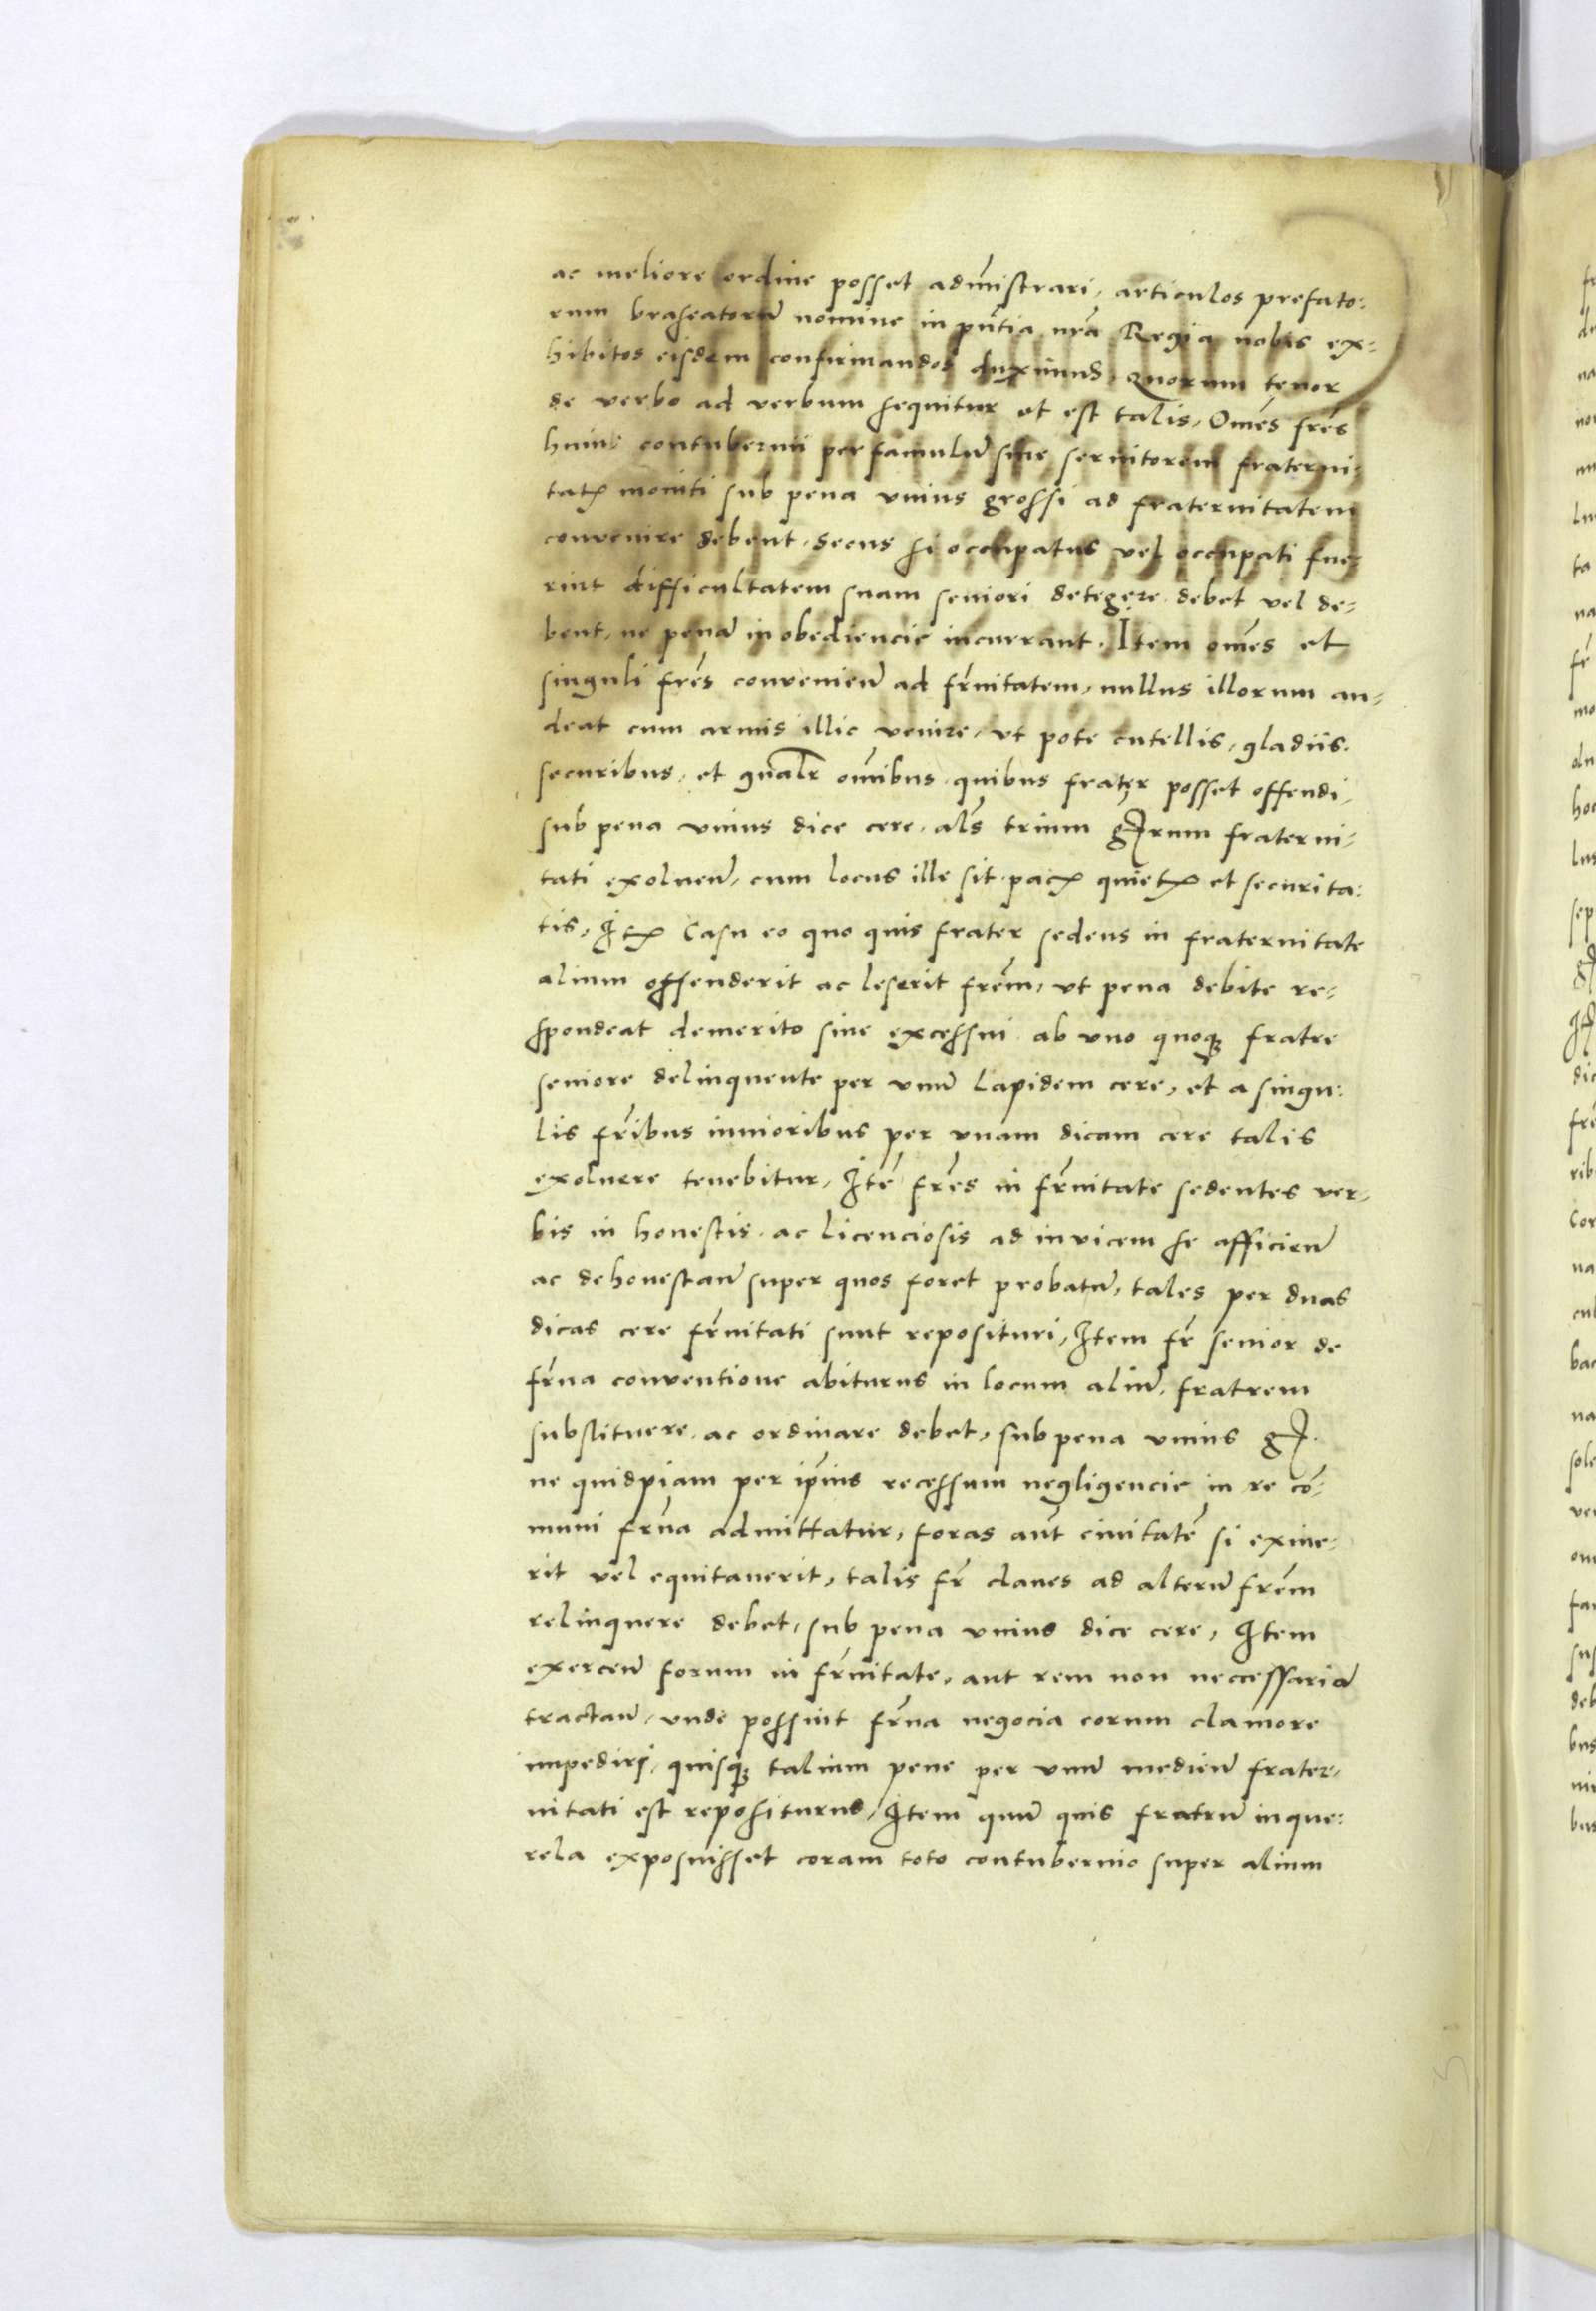 ac meliore ordine posset adm̃istrari, articulos prefato:
rum braseatorũ nomine in pñtia nr̃a Regia nobis ex:
hibitos eisdem confirmandos duximus, Quorum tenor
de verbo ad verbum sequitur et est talis, Om̃es fr̃es
huius contubernii per famulũ siue seruitorem fraterni:
tatꝭ moniti sub pena vnius grossi ad fraternitatem
conuenire debent, Secus si occupatus vel occupati fue:
rint difficultatem suam seniori detegere debet vel de:
bent, ne penã in obediencie incurrant. Item om̃es et
singuli fr̃es conueniẽn ad fr̃nitatem, nullus illorum au:
deat cum armis illic venire, vt pote cutellis, gladiis.
securibus, et gñalr̃ om̃ibus quibus frater posset offendi,
sub pena vnius dice cere, als̃ trium gꝭrum fraterni:
tati exoluen̄, cum locus ille sit pacꝭ quietꝭ et securita:
tis, Itꝭ Casu eo quo quis frater sedens in fraternitate
alium offenderit ac leserit fr̃em, vt pena debite re:
spondeat demerito siue excessui ab vno quoqꝫ fratre
seniore delinquente per vnũ Lapidem cere, et a singu:
lis fr̃ibus iunioribus per vnam dicam cere talis
exoluere tenebitur, Itẽ fr̃es in fr̃nitate sedentes ver:
bis in honestis ac licenciosis ad invicem se afficien̄
ac dehonestan̄ super quos foret probatũ, tales per duas
dicas cere fr̃nitati sunt reposituri, Item fr̃ senior de
fr̃na conventione abiturus in locum aliũ, fratrem
substituere ac ordinare debet, sub pena vnius gꝭ.
ne quidpiam per ip̃ius recessum negligencie in re cõ:
muni fr̃na admittatur, foras aũt ciuitatẽ si exiue:
rit vel equitauerit, talis fr̃ claues ad alterũ fr̃em
relinquere debet, sub pena vnius dice cere, Item
exercen̄ forum in fr̃nitate, aut rem non neccessariã
tractan̄, vnde possint fr̃na negocia eorum clamore
impediri, quisqꝫ talium pene per vnũ mediũ frater:
nitati est repositurus, Item quũ quis fratrũ in que:
rela exposuisset coram toto contubernio super alium